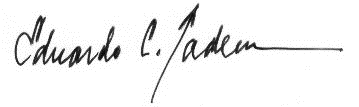 Eduardo C. Tadem